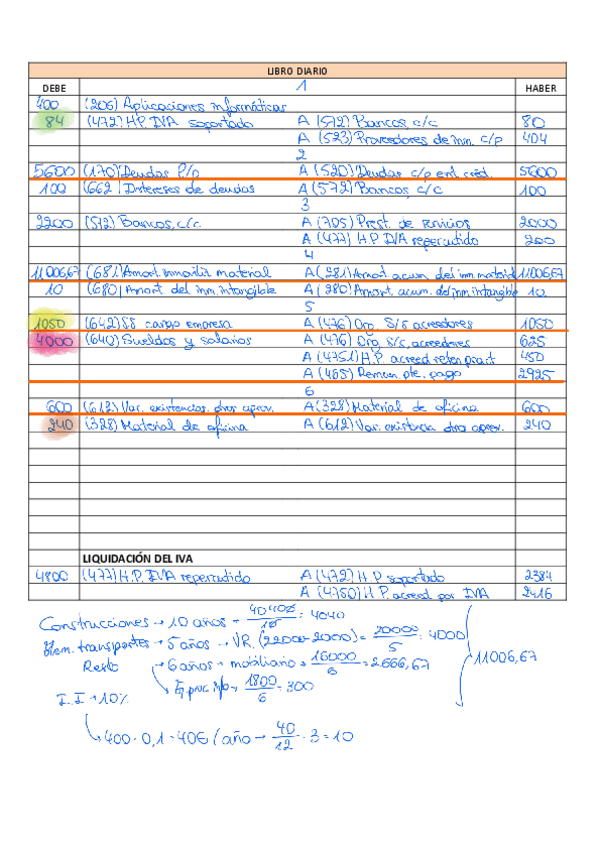 LIBRO DIARIO
DEBE 1 HABER
400 (206) Aplicaciones informáticas
84 (472) H.P. IVA soportado A (572) Bancos c/c 80
A (523) Proveedores de inm. c/p 404
2
5600 (170) Deudas l/p A (520) Deudas c/p ent. créd. 5600
100 (662) Intereses de deudas A (572) Bancos, c/c 100
3
2200 (572) Bancos, c/c A (705) Prest. de servicios 2000
A (477) H.P. IVA repercutido 200
4
11006,67 (681) Amort. inmoviliz material A (281) Amort. acum. del inm. material 11006,67
10 (680) Amort. del inm. intangible A (280) Amort. acum. del inm. intangible 10
5
1050 (642) SS cargo empresa A (476) Org. S/S acreedores 1050
4000 (640) Sueldos y salarios A (476) Org. S/S, acreedores 625
A (4751) H.P. acreed reten pract 450
A (465) Remun. pte. pago 2925
6
600 (612) Var. existencias. otros aprov. A (328) Material de oficina 600
240 (328) Material de oficina A (612) Var. existencia otro aprov. 240
LIQUIDACIÓN DEL IVA
4800 (477) H.P. IVA repercutido A (472) H.P. soportado 2384
A (4750) H.P. acreed por IVA 2416
Construcciones → 10 años → 40400/10 = 4040
Elem. transportes → 5 años → VR. (22000-2000) = 20000/5 = 4000
Resto → 6 años → mobiliario = 16000/6 = 2666,67 11006,67
→ Eq. proc. info → 1800/6 = 300
I.I → 10%
→ 400 · 0,1 = 40€ / año → 40/12 · 3 = 10